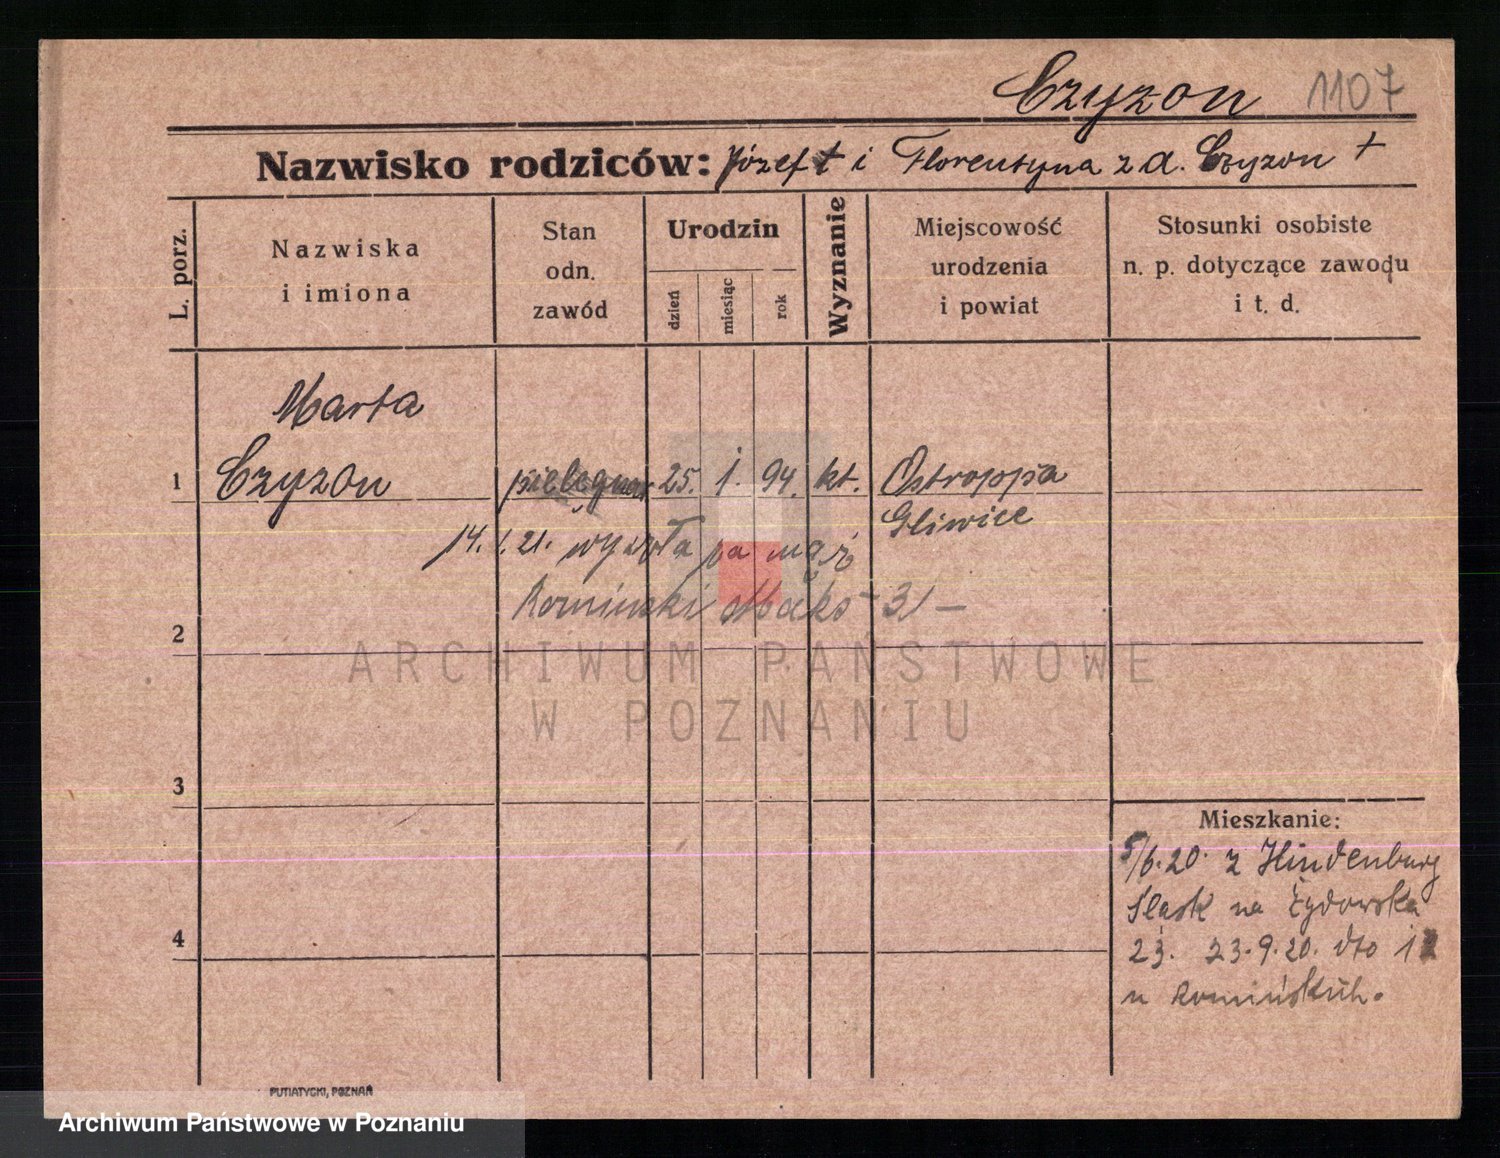 Czyzon 1107
Nazwisko rodziców: Józef † i Florentyna z d. Czyzon +
L. porz.
Nazwiska
i imiona
Stan
odn.
zawód
Urodzin
dzień
miesiąc
rok
Wyznanie
Miejscowość
urodzenia
i powiat
Stosunki osobiste
n. p. dotyczące zawodu
i t. d.
Marta
1 Czyzon pielęgniar 25. 1. 94. kt. Ostroppa
Gliwice
14. 1. 21. wyszła za mąż
Romiński 31 —
2
ARCHIWUM PAŃSTWOWE
W POZNANIU
3
Mieszkanie:
5/6.20. z Hindenburg
Śląsk na Żydowska
23. 23.9.20. dto
u Romińskich.
4
PUTIATYCKI, POZNAŃ
Archiwum Państwowe w Poznaniu